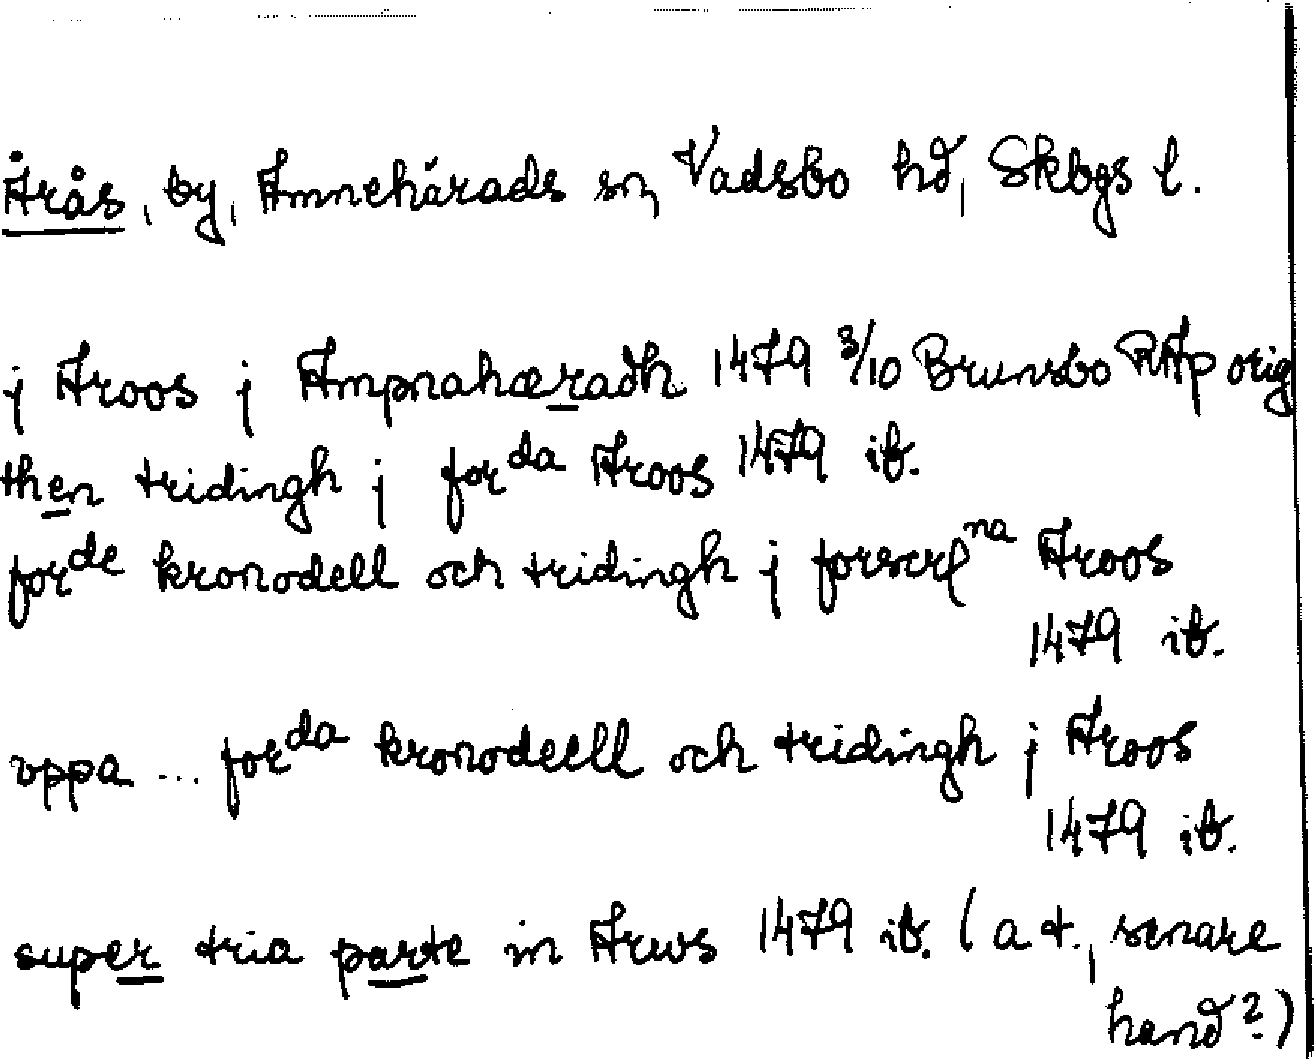 Årås, by, Amnehärads sn, Vadsbo hd, Skbgs l.
j Aroos j Ampnahæradh 1479 3/10 Brunsbo RAp orig
then tridingh j for da Aroos 1479 ib.
for de kronodell och tridingh j forscr na Aroos
1479 ib.
vppa ... for da kronodeell och tridingh j Aroos
1479 ib.
super tria parte in Arws 1479 ib. (a t., senare
hand?)